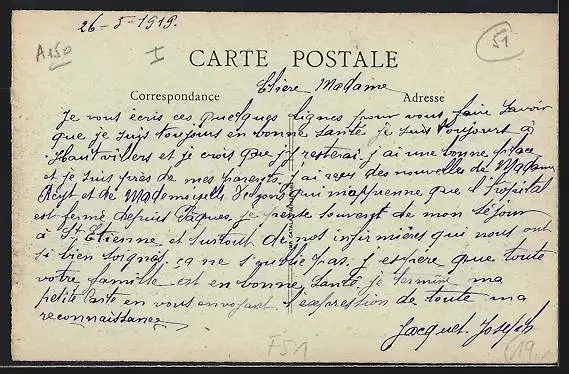 26-5-1919.
A150
I
51
CARTE POSTALE
Chère Madame
Correspondance
Adresse
Je vous écris ces quelques lignes pour vous faire savoir
que je suis toujours en bonne santé je suis toujours à
Hautvillers et je crois que j'y resterai j'ai une bonne place
et je suis près de mes parents, j'ai reçu des nouvelles de Madame
et de Mademoiselle qui m'apprenne que l'hopital
est fermé depuis Pâques, je pense souvent de mon séjour
à St Etienne et surtout de nos infirmières qui nous ont
si bien soignés, ça ne s'oublie pas. j'espère que toute
votre famille est en bonne santé je termine ma
petite carte en vous envoyant l'expression de toute ma
reconnaissance
Jacquet Joseph
F51
(19